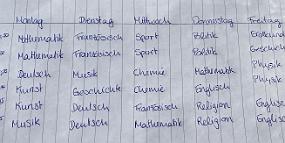 Montag Dienstag Mittwoch Donnerstag Freitag
Mathematik Französisch Sport Politik
Mathematik Französisch Sport Politik
Deutsch Musik Chemie Mathematik Physik
Kunst Geschichte Chemie Englisch Physik
Kunst Deutsch Französisch Religion
Musik Deutsch Mathematik Religion